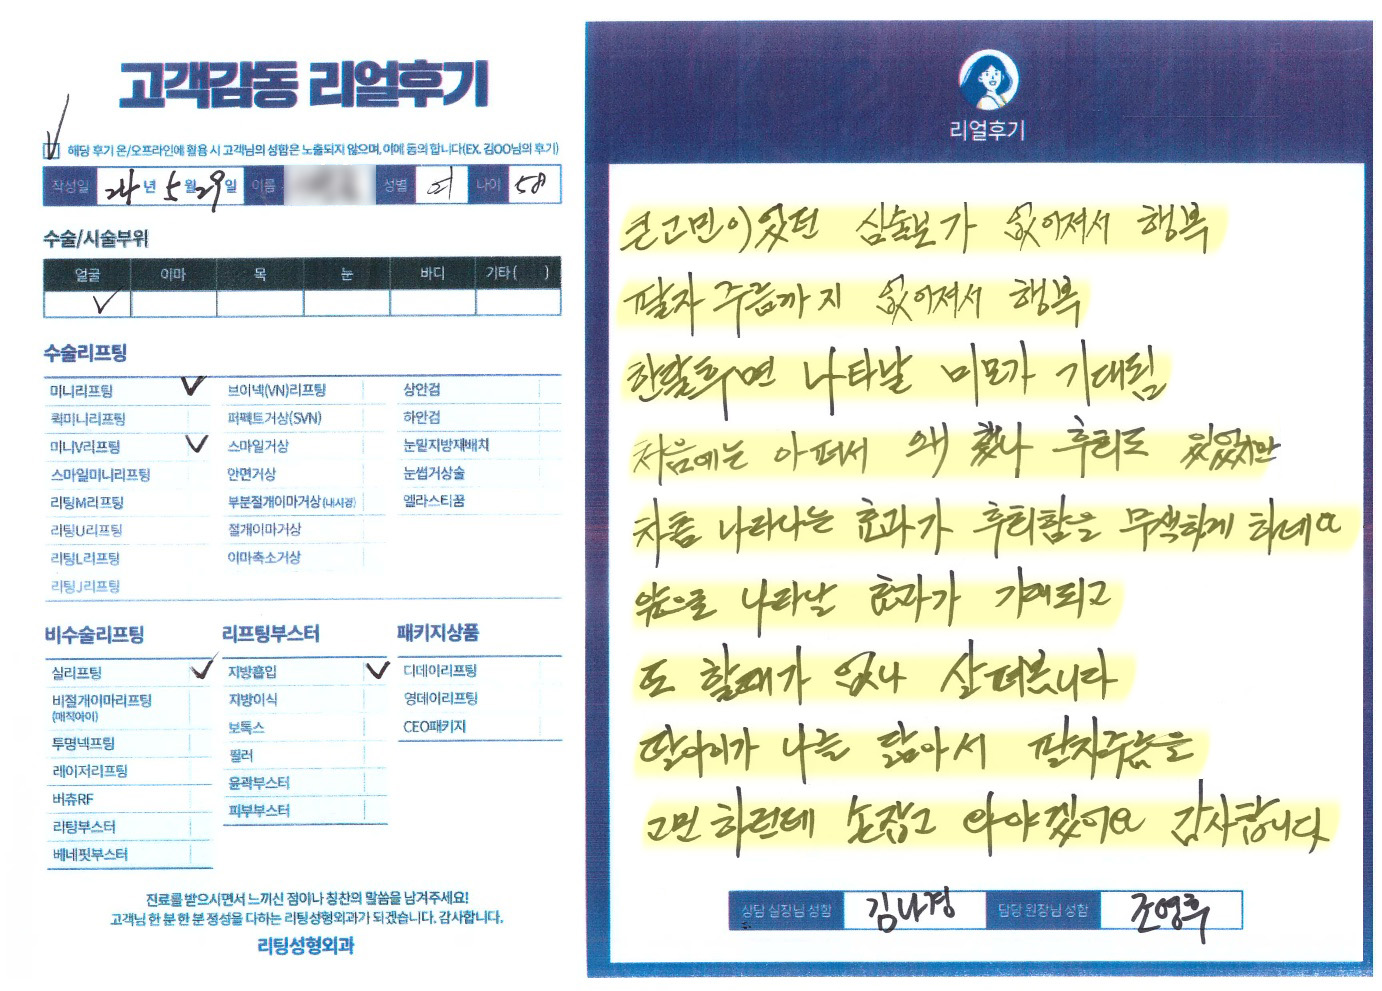 고객감동 리얼후기
해당 후기 온/오프라인에 활용 시 고객님의 성함은 노출되지 않으며, 이에 동의 합니다(EX. 김OO님의 후기)
작성일 24년 5월 29일 이름 성별 여 나이 58
수술/시술부위
얼굴 이마 목 눈 바디 기타( )
수술리프팅
미니리프팅 브이넥(VN)리프팅 상안검
퀵미니리프팅 퍼펙트거상(SVN) 하안검
미니V리프팅 스마일거상 눈밑지방재배치
스마일미니리프팅 안면거상 눈썹거상술
리팅M리프팅 부분절개이마거상(내시경) 엘라스티꿈
리팅U리프팅 절개이마거상
리팅L리프팅 이마축소거상
리팅J리프팅
비수술리프팅 리프팅부스터 패키지상품
실리프팅 지방흡입 디데이리프팅
비절개이마리프팅 지방이식 영데이리프팅
(매직아이)
보톡스 CEO패키지
투명넥프팅 필러
레이저리프팅 윤곽부스터
버츄RF 피부부스터
리팅부스터
베네핏부스터
진료를 받으시면서 느끼신 점이나 칭찬의 말씀을 남겨주세요!
고객님 한 분 한 분 정성을 다하는 리팅성형외과가 되겠습니다. 감사합니다.
리팅성형외과
리얼후기
큰고민이 있던 심술보가 없어져서 행복
팔자 주름까지 없어져서 행복
한달후면 나타날 미모가 기대됨
처음에는 아퍼서 왜 했나 후회도 있었지만
차츰 나타나는 효과가 후회함을 무색하게 하네요
앞으로 나타날 효과가 기대되고
또 할때가 없나 살펴봅니다
딸아이가 나를 닮아서 팔자주름을
고민 하던데 손잡고 와야겠어요 감사합니다
상담 실장님 성함 김나경 담당 원장님 성함 조영후